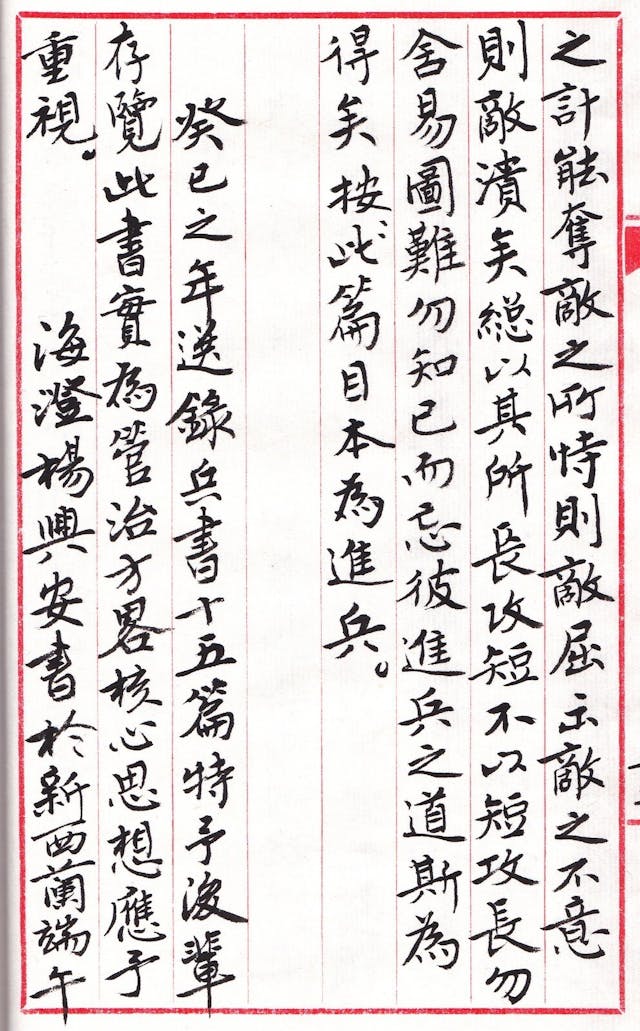 之計能奪敵之所恃則敵屈出敵之不意
則敵潰矣総以其所長攻短不以短攻長勿
舍易圖難勿知己而忘彼進兵之道斯為
得矣按此篇目本為進兵。
癸巳之年送錄兵書十五篇特予後輩
存覽此書實為管治方畧核心思想應予
重視。
海澄楊興安書於新西蘭端午